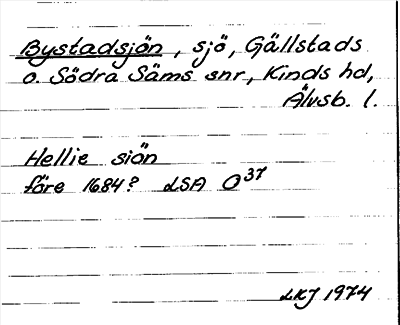 Bystadsjön, sjö, Gällstads
o. Södra Säms snr, Kinds hd,
Älvsb. l.
Hellie siön
före 1684? LSA O37
LKJ 1974